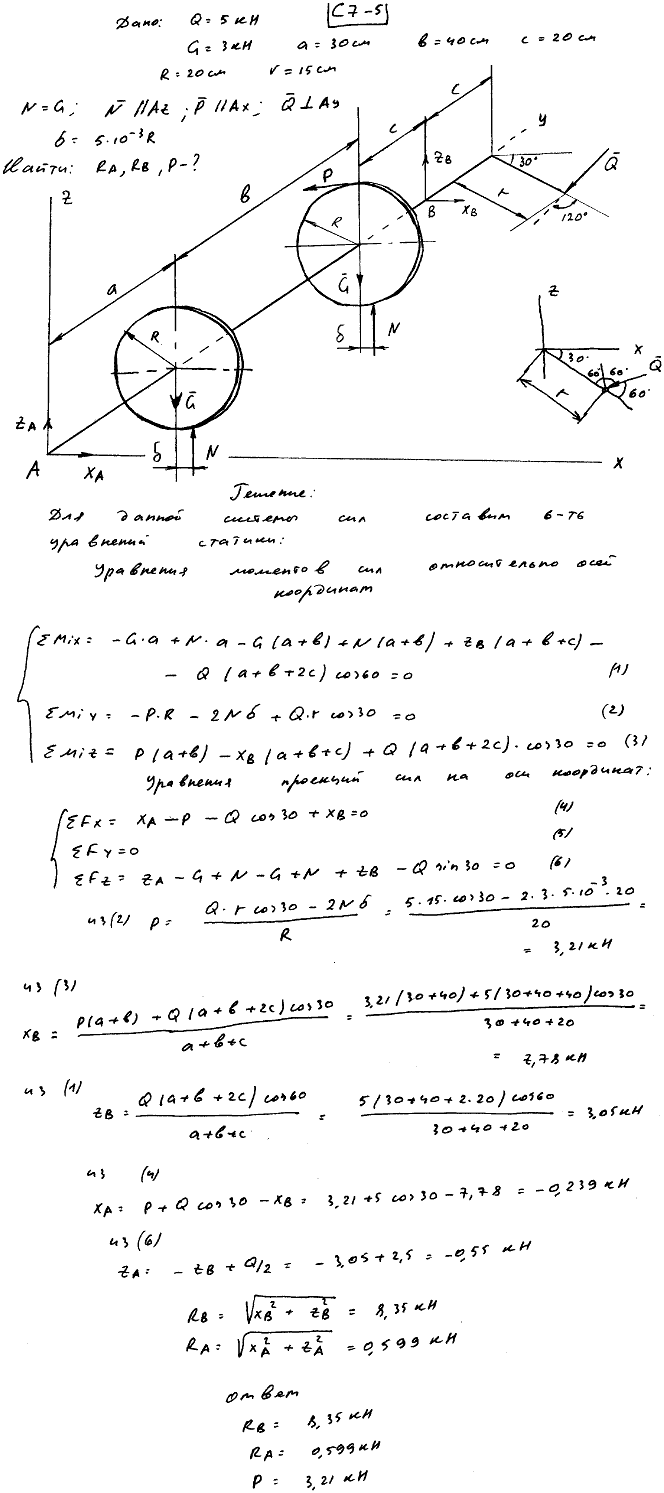 С7-5
Дано: Q = 5 кН
G = 3 кН a = 30 см в = 40 см c = 20 см
R = 20 см r = 15 см
N = G; N̄ // Az; P̄ // Ax; Q̄ ⊥ Ay
δ = 5·10⁻³R
Найти: RA, RB, P - ?
z
a
в
c
c
y
30°
Q̄
120°
r
zB
xB
B
P
R
Ḡ
δ
N
R
Ḡ
δ
N
zA
A
xA
x
z
x
30°
60°
60°
60°
Q̄
r
Решение:
Для данной системы сил составим 6-ть
уравнений статики:
Уравнения моментов сил относительно осей
координат
ΣMix = -G·a + N·a - G(a+в) + N(a+в) + zB(a+в+c) -
- Q(a+в+2c) cos60 = 0 (1)
ΣMiy = -P·R - 2Nδ + Q·r cos30 = 0 (2)
ΣMiz = P(a+в) - xB(a+в+c) + Q(a+в+2c)·cos30 = 0 (3)
Уравнения проекций сил на оси координат:
ΣFx = xA - P - Q cos30 + xB = 0 (4)
ΣFy = 0 (5)
ΣFz = zA - G + N - G + N + zB - Q sin30 = 0 (6)
из (2) P = (Q·r cos30 - 2Nδ)/R = (5·15·cos30 - 2·3·5·10⁻³·20)/20 =
= 3,21 кН
из (3)
xB = (P(a+в) + Q(a+в+2c) cos30)/(a+в+c) = (3,21(30+40) + 5(30+40+40) cos30)/(30+40+20) =
= 7,78 кН
из (1)
zB = (Q(a+в+2c) cos60)/(a+в+c) = (5(30+40+2·20) cos60)/(30+40+20) = 3,05 кН
из (4)
xA = P + Q cos30 - xB = 3,21 + 5 cos30 - 7,78 = -0,239 кН
из (6)
zA = - zB + Q/2 = - 3,05 + 2,5 = -0,55 кН
RB = √(xB² + zB²) = 8,35 кН
RA = √(xA² + zA²) = 0,599 кН
ответ
RB = 8,35 кН
RA = 0,599 кН
P = 3,21 кН